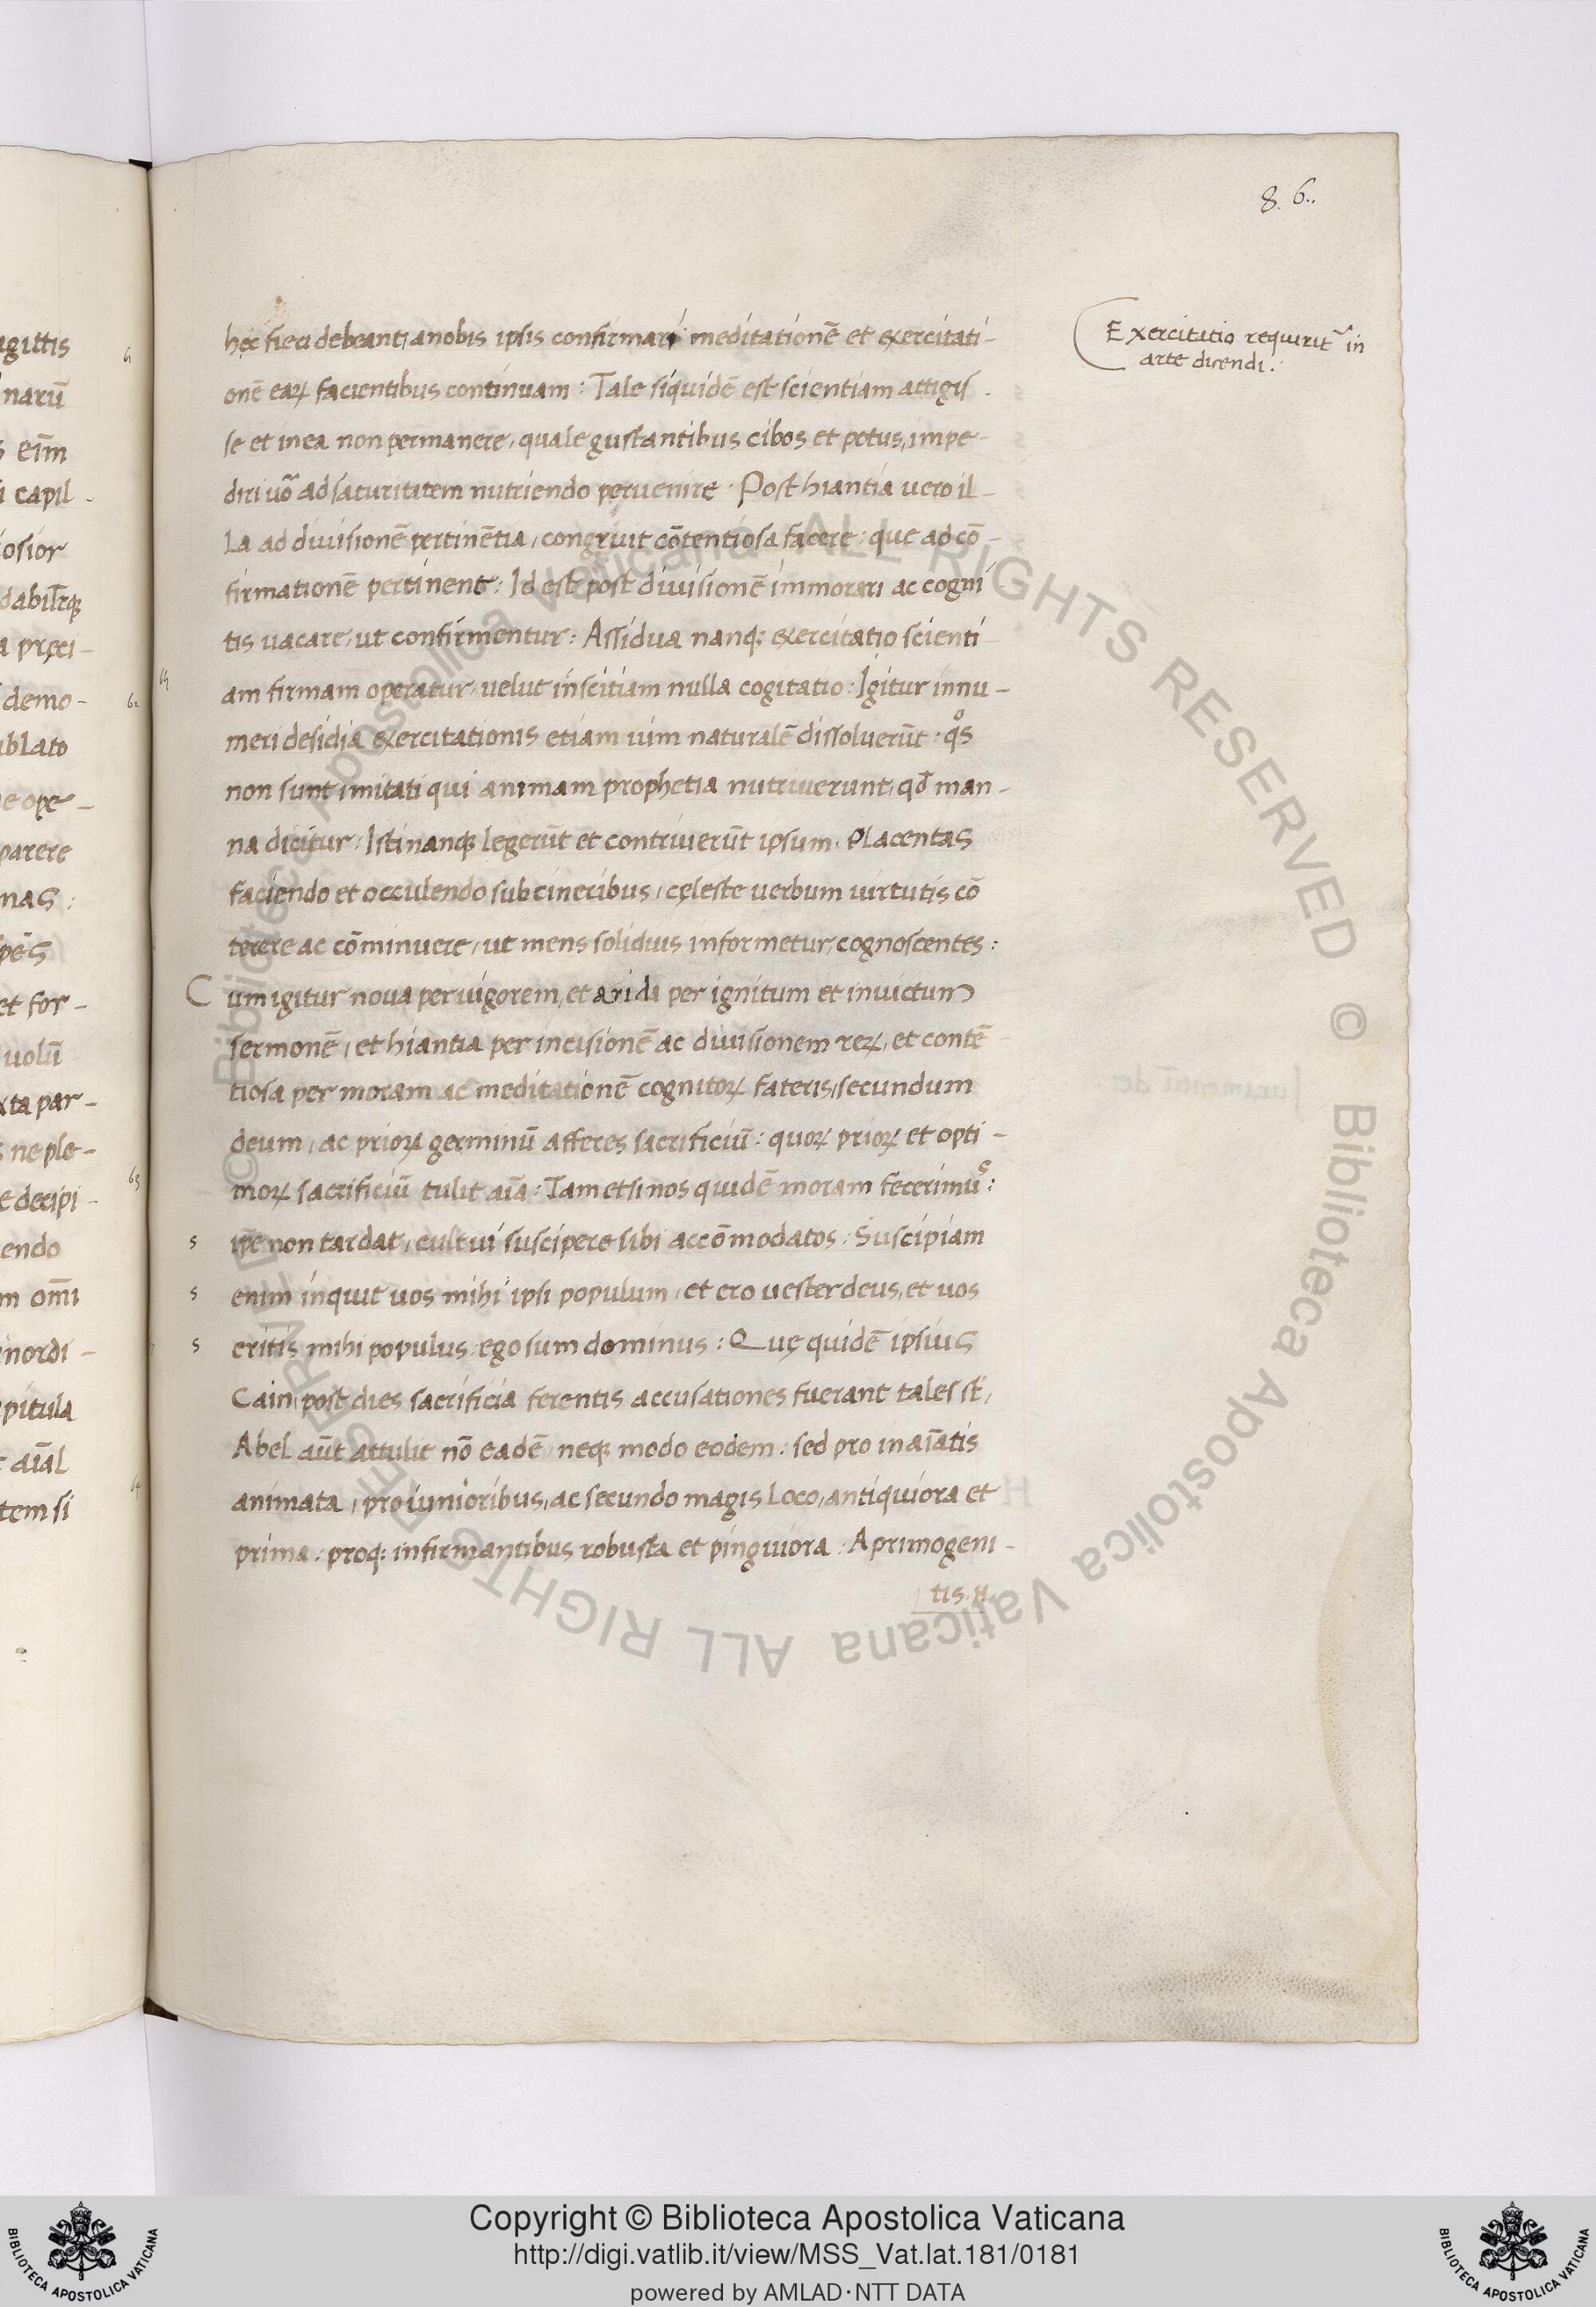 8 6..
Exercitatio requirit᷉ in
arte dicendi.
hęc fieri debeant, a nobis ipsis confirmari meditationē et exercitati-
onē eaꝝ facientibus continuam: Tale siquidē est scientiam attigis-
se et in ea non permanere, quale gustantibus cibos et potus, impe-
diri uō ad saturitatem nutriendo pervenire. Post hiantia vero il-
la ad divisionē pertinētia, congruit cōtentiosa facere: que ad cō-
firmationē pertinent: Id est post divisionē immorari ac cogni
tis vacare, ut confirmentur: Assidua nanqꝫ exercitatio scienti-
am firmam operatur, velut inscitiam nulla cogitatio: Igitur innu-
meri desidia exercitationis etiam vim naturalē dissoluerūt: qͦs
non sunt imitati qui animam prophetia nutriverunt, qđ man-
na dicitur: Isti nanqꝫ legerūt et contriverūt ipsum. Placentas
faciendo et occulendo sub cineribus, cęleste verbum virtutis cō
terere ac cōminuere, ut mens solidius informetur, cognoscentes:
Cum igitur nova per vigorem, et arida per ignitum et invictum
sermonē, et hiantia per incisionē ac divisionem reꝝ, et contē
tiosa per moram ac meditationē cognitoꝝ fateris, secundum
deum, ac prioꝝ germinū afferes sacrificiū: quoꝝ prioꝝ et opti-
moꝝ sacrificiū tulit aīa: Tametsi nos quidē moram fecerimus:
ip̄e non tardat, cultui suscipere sibi accōmodatos: Suscipiam
enim inquit vos mihi ipsi populum, et ero vester deus, et vos
eritis mihi populus: ego sum dominus: Quę quidē ipsius
Cain, post dies sacrificia ferentis accusationes fuerant tales st̄,
Abel aūt attulit nō eadē neqꝫ modo eodem: sed pro inaīatis
animata, pro iunioribus, ac secundo magis loco, antiquiora et
prima: proqꝫ infirmantibus robusta et pinguiora: A primogeni-
tis .n.
Copyright © Biblioteca Apostolica Vaticana
http://digi.vatlib.it/view/MSS_Vat.lat.181/0181
powered by AMLAD·NTT DATA